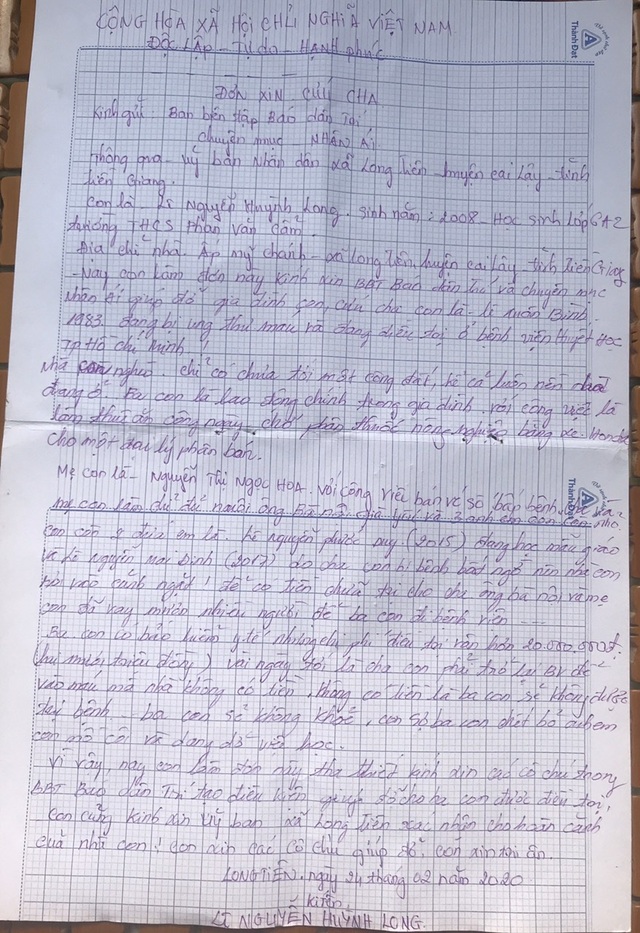 CỘNG HÒA XÃ HỘI CHỦ NGHĨA VIỆT NAM
Độc Lập - Tự do - Hạnh phúc
Thành Đạt
ĐƠN XIN CỨU CHA
Kính gửi Ban biên tập Báo dân trí
chuyên mục NHÂN ÁI
Thông qua - Uỷ ban Nhân dân xã Long Tiên - huyện cai lậy - tỉnh
tiền Giang.
con là - Lê Nguyễn Huỳnh Long. sinh năm: 2008 - Học sinh Lớp 6A2
trường THCS Phan văn cầm.
Địa chỉ nhà. Ấp mỹ chánh - xã long tiên, huyện cai lậy - tỉnh Tiền Giang
- Nay con làm đơn này kính xin BBT Báo dân trí và chuyên mục
Nhân Ái giúp đỡ gia đình con, cứu cha con là - lê xuân Bình.
1983. đang bị ung thư máu và đang điều trị ở bệnh viện Huyết Học
TP Hồ chí minh.
nhà con nghèo. chỉ có chưa tới một công đất, kể cả luôn nền nhà
đang ở. Ba con là lao động chính trong gia đình. với công việc là
làm thuê ăn công ngày, chở phân thuốc nông nghiệp bằng xe Honda
cho một đại lý phân bán.
Mẹ con là - Nguyễn Thị Ngọc HOA. với công việc bán vé số, bấp bênh,
Thành Đạt
mẹ con làm đủ để nuôi ông Bà nội già yếu và 3 anh em con còn nhỏ.
con còn 2 đứa em là. Lê nguyễn phước huy (2015) đang học mẫu giáo
và lê nguyễn mai Định (2017) do cha con bị bệnh bất ngờ nên nhà con
rơi vào cảnh ngặt! để có tiền chữa trị cho cha ông bà nội và mẹ
con đã vay mượn nhiều người để ba con đi bệnh viện ....
Ba con có bảo hiểm y tế nhưng chi phí điều trị vẫn hơn 20.000.000đ.
(hai mươi triệu đồng) vài ngày tới là cha con phải trở lại BV để
vào máu mà nhà không có tiền. không có tiền là ba con sẽ không được
trị bệnh ba con sẽ không khỏe, con sợ ba con chết bỏ anh em
con mồ côi và dang dở việc học.
Vì vậy, nay con làm đơn này tha thiết kính xin các cô chú trong
BBT Báo dân Trí tạo điều kiện giúp đỡ cho ba con được điều trị,
con cũng kính xin Uỷ ban xã Long tiên xác nhận cho hoàn cảnh
của nhà con! con xin các cô chú giúp đỡ. con xin tri ân.
LONGTIÊN, ngày 24 tháng 02 năm 2020
LÊ NGUYỄN HUỲNH LONG.